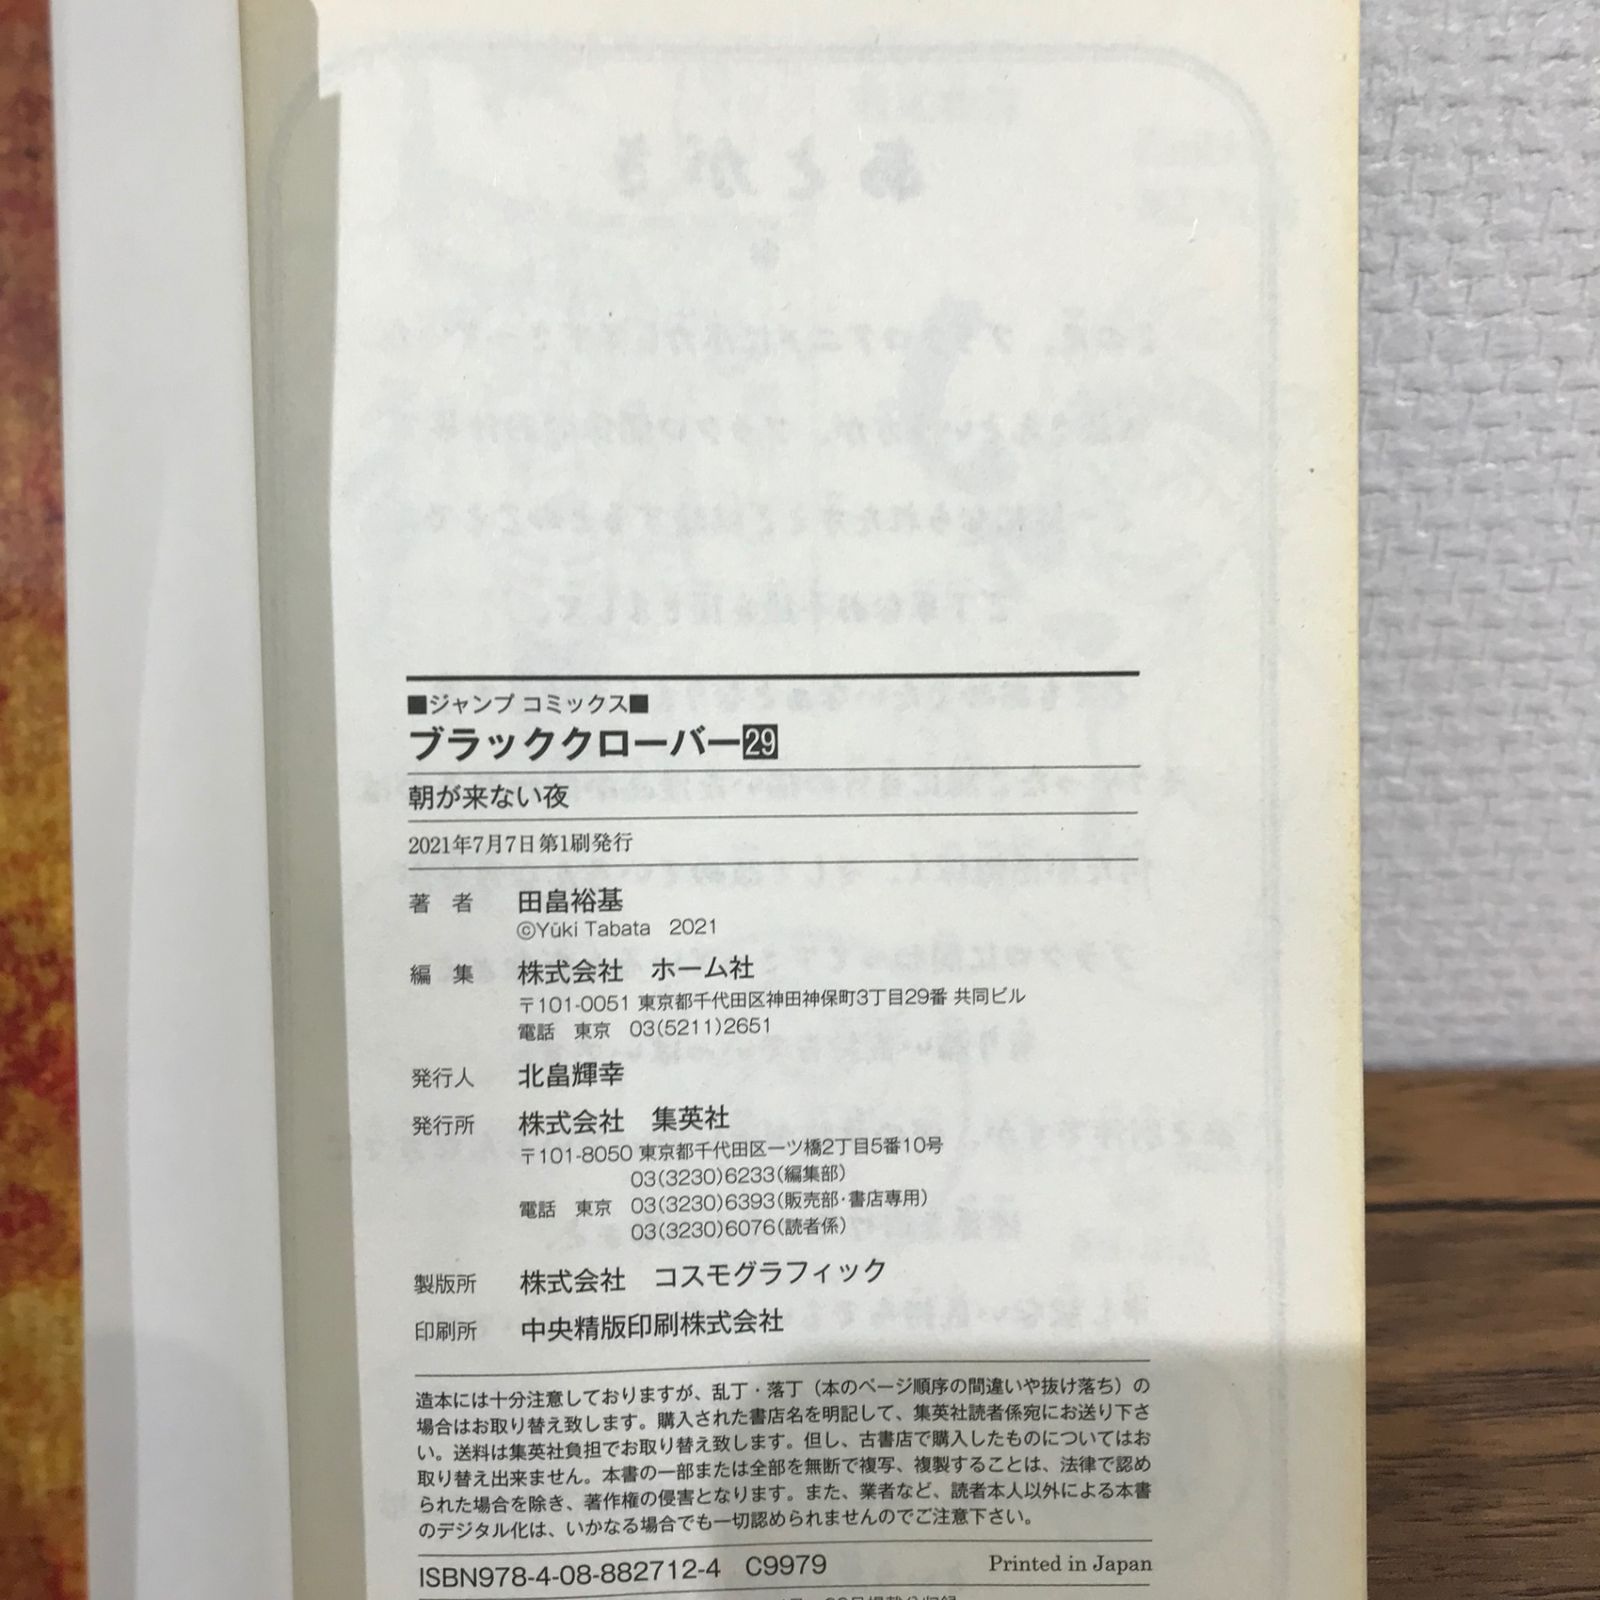 ■ジャンプ コミックス■
ブラッククローバー29
朝が来ない夜
2021年7月7日第1刷発行
著 者 田畠裕基
©Yūki Tabata 2021
編 集 株式会社 ホーム社
〒101-0051 東京都千代田区神田神保町3丁目29番 共同ビル
電話 東京 03(5211)2651
発行人 北畠輝幸
発行所 株式会社 集英社
〒101-8050 東京都千代田区一ツ橋2丁目5番10号
03(3230)6233(編集部)
電話 東京 03(3230)6393(販売部・書店専用)
03(3230)6076(読者係)
製版所 株式会社 コスモグラフィック
印刷所 中央精版印刷株式会社
造本には十分注意しておりますが、乱丁・落丁（本のページ順序の間違いや抜け落ち）の
場合はお取り替え致します。購入された書店名を明記して、集英社読者係宛にお送り下さ
い。送料は集英社負担でお取り替え致します。但し、古書店で購入したものについてはお
取り替え出来ません。本書の一部または全部を無断で複写、複製することは、法律で認め
られた場合を除き、著作権の侵害となります。また、業者など、読者本人以外による本書
のデジタル化は、いかなる場合でも一切認められませんのでご注意下さい。
ISBN978-4-08-882712-4 C9979 Printed in Japan